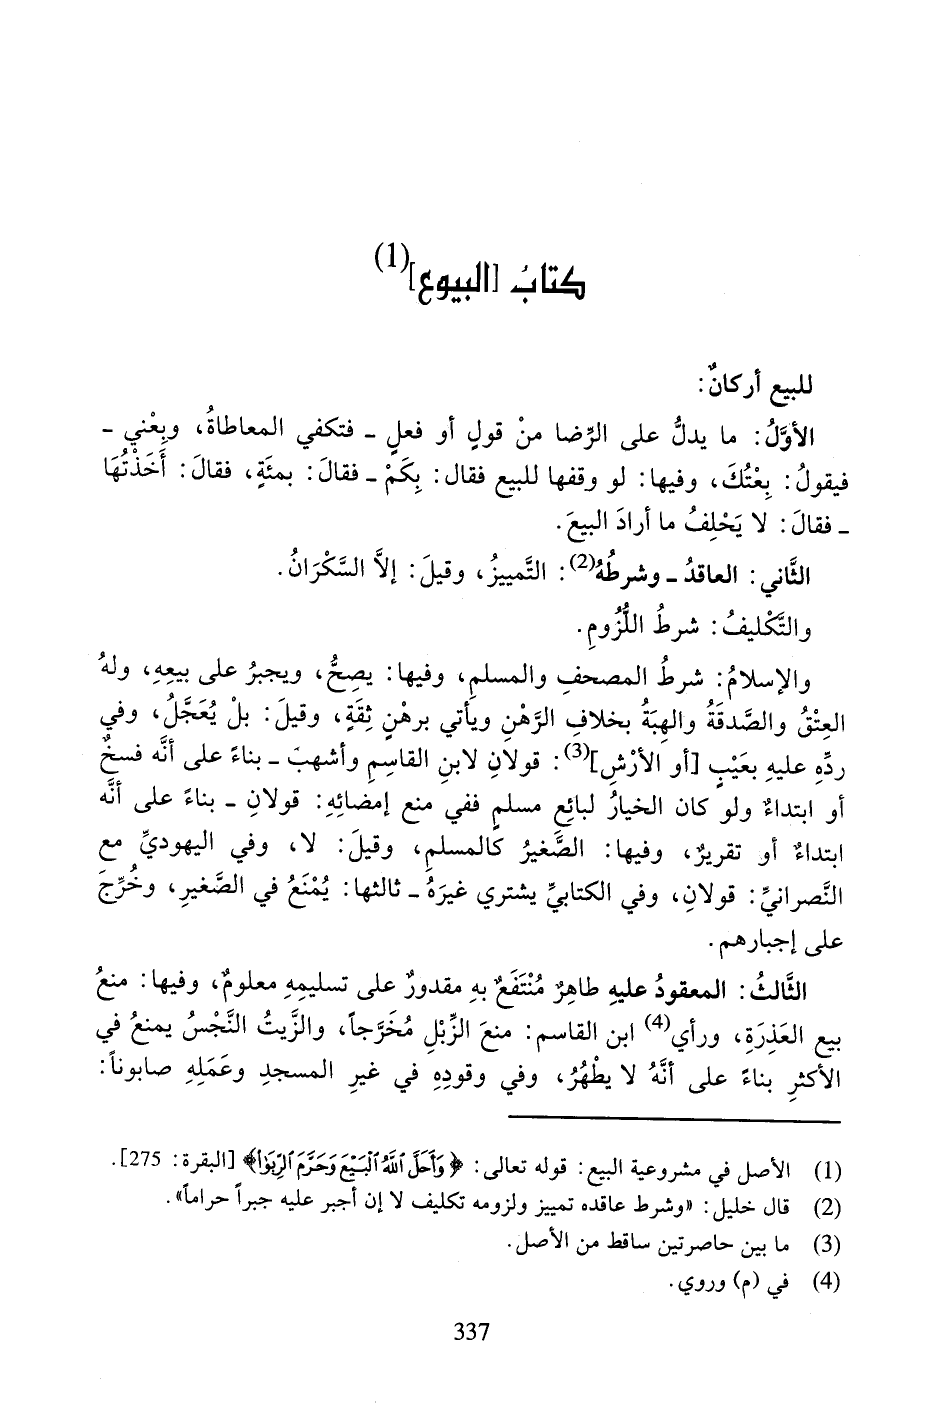 كتابُ [البيوع](1)
للبيع أركانٌ:
الأوَّلُ: ما يدلُّ على الرِّضا منْ قولٍ أو فعلٍ ـ فتكفي المعاطاةُ، وبِعْني ـ
فيقولُ: بِعْتُكَ، وفيها: لو وقفها للبيع فقال: بِكَمْ ـ فقالَ: بمئَةٍ، فقالَ: أَخَذْتُهَا
ـ فقالَ: لا يَحْلِفُ ما أرادَ البيعَ.
الثَّاني: العاقدُ ـ وشرطُهُ(2): التَّمييزُ، وقيلَ: إلاَّ السَّكْرَانُ.
والتَّكْليفُ: شرطُ اللُّزُومِ.
والإسلامُ: شرطُ المصحفِ والمسلمِ، وفيها: يصِحُّ، ويجبرُ على بيعِهِ، ولهُ
العِتْقُ والصَّدقَةُ والهِبَةُ بخلافِ الرَّهْنِ ويأتي برهْنٍ ثِقَةٍ، وقيلَ: بلْ يُعَجَّلُ، وفي
ردِّهِ عليهِ بعَيْبٍ [أو الأرْشِ](3): قولانِ لابنِ القاسِمِ وأشهبَ ـ بناءً على أنَّه فسخٌ
أو ابتداءٌ ولو كان الخيارُ لبائعٍ مسلمٍ ففي منع إمضائِهِ: قولانِ ـ بناءً على أنَّه
ابتداءٌ أو تقريرٌ، وفيها: الصَّغيرُ كالمسلمِ، وقيلَ: لا، وفي اليهوديِّ مع
النَّصرانيِّ: قولانِ، وفي الكتابيِّ يشتري غيرَهُ ـ ثالثها: يُمْنَعُ في الصَّغيرِ، وخُرِّجَ
على إجبارهم.
الثَّالثُ: المعقودُ عليهِ طاهرٌ مُنْتَفَعٌ بهِ مقدورٌ على تسليمِهِ معلومٌ، وفيها: منعُ
بيع العَذِرَةِ، ورأي(4) ابن القاسم: منعَ الزِّبْلِ مُخَرَّجاً، والزَّيتُ النَّجْسُ يمنعُ في
الأكثرِ بناءً على أنَّهُ لا يطْهُرُ، وفي وقودِهِ في غيرِ المسجدِ وعَمَلِهِ صابوناً:
(1) الأصل في مشروعية البيع: قوله تعالى: ﴿وَأَحَلَّ ٱللَّهُ ٱلْبَيْعَ وَحَرَّمَ ٱلرِّبَوٰا﴾ [البقرة: 275].
(2) قال خليل: «وشرط عاقده تمييز ولزومه تكليف لا إن أجبر عليه جبراً حراماً».
(3) ما بين حاصرتين ساقط من الأصل.
(4) في (م) وروي.
337